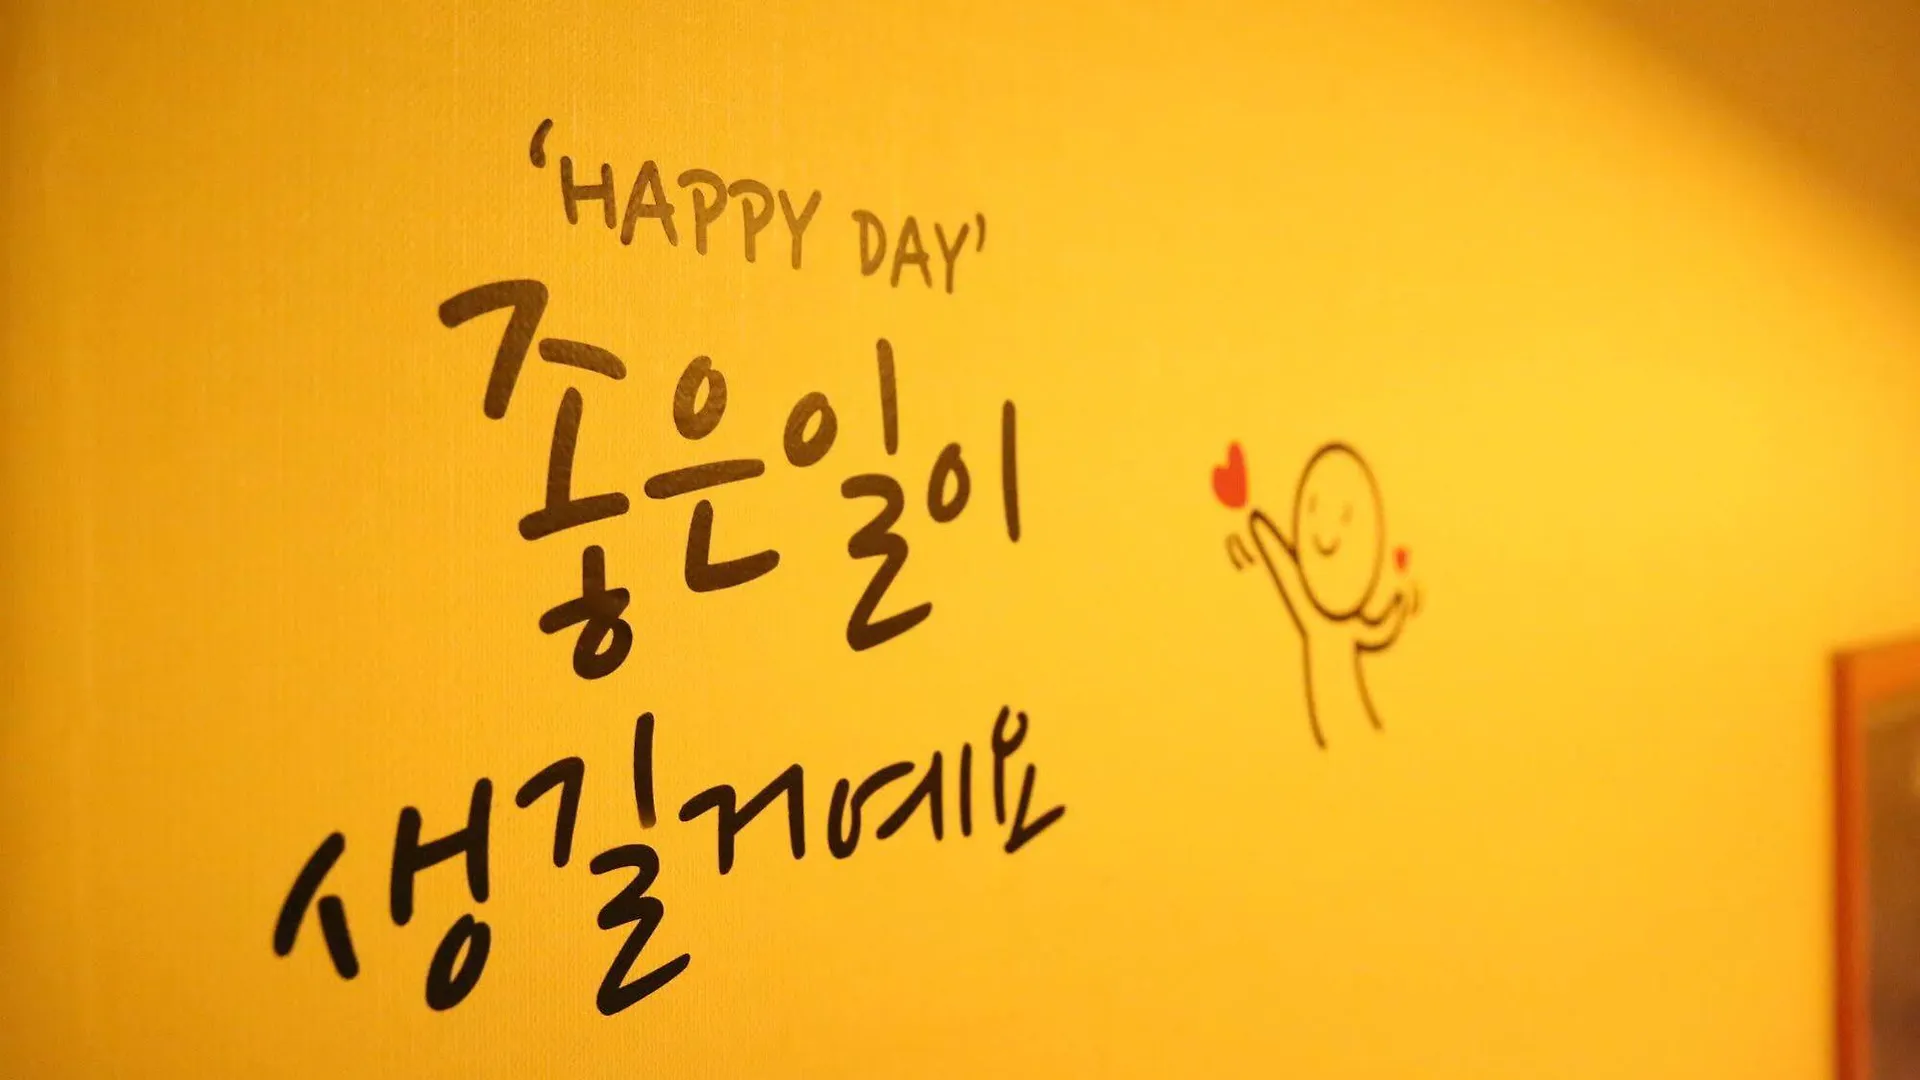 ‘HAPPY DAY’
좋은일이
생길거예요